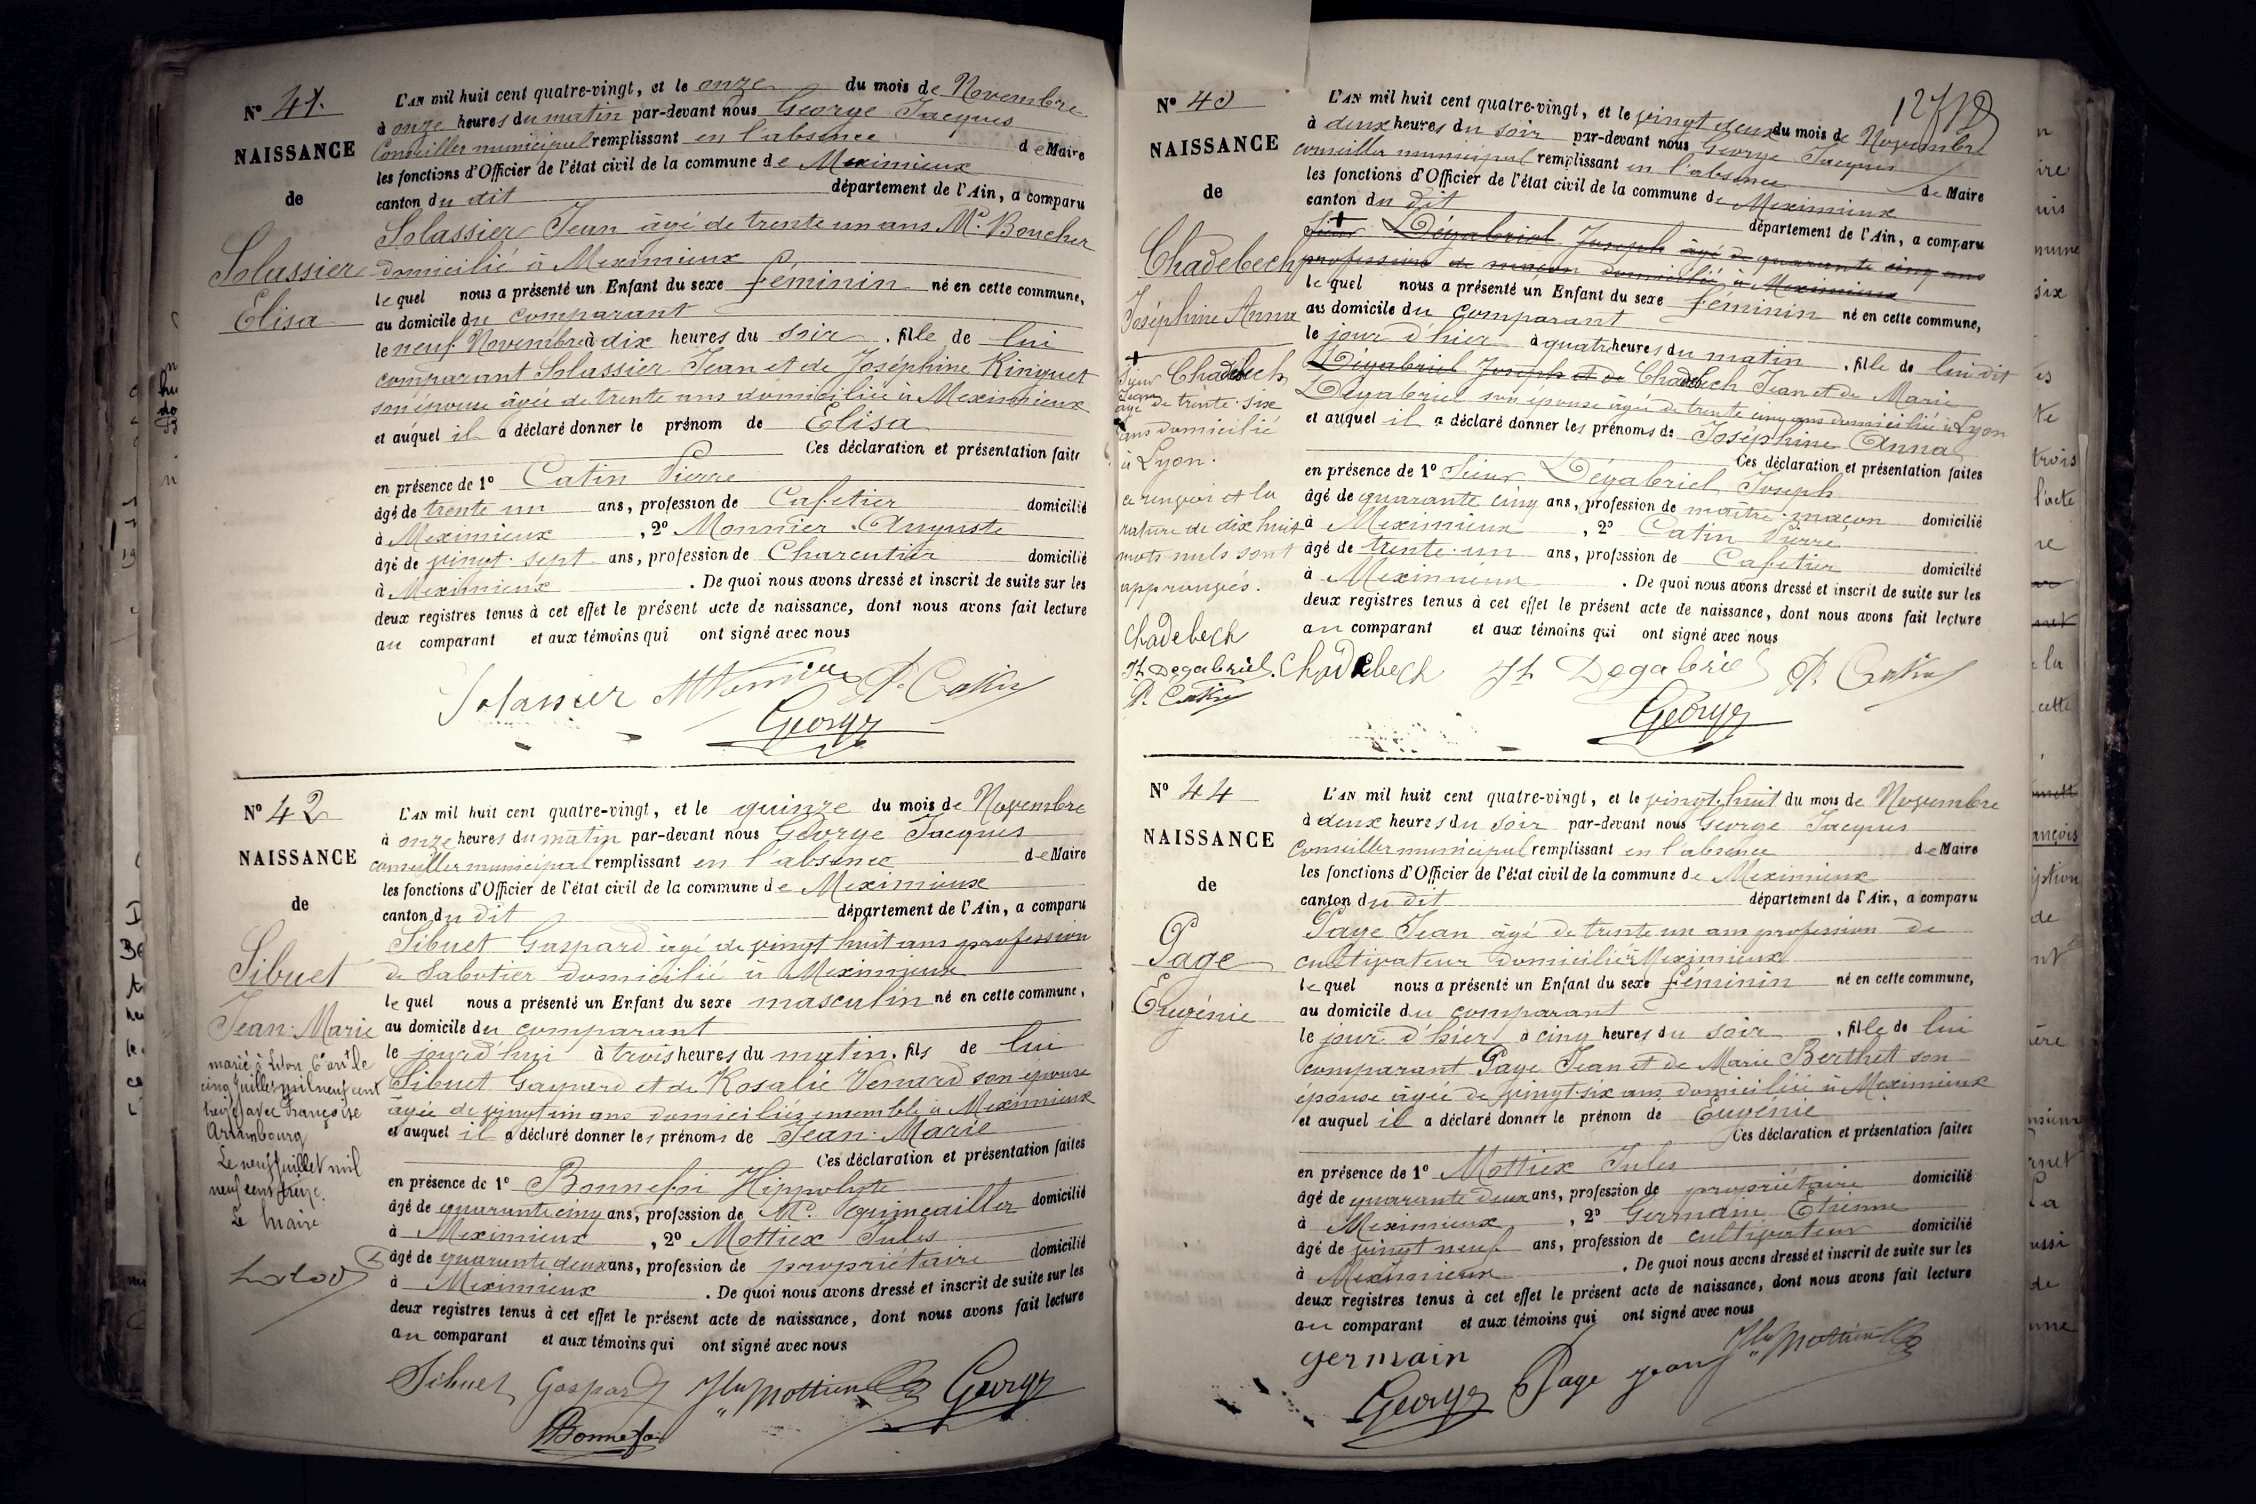 N° 41.
NAISSANCE
de
Solassier
Elisa
L'AN mil huit cent quatre-vingt, et le onze du mois de Novembre
à onze heures du matin par-devant nous George Jacques
Conseiller municipal remplissant en l'absence de Maire
les fonctions d'Officier de l'état civil de la commune de Meximieux
canton du dit département de l'Ain, a comparu
Solassier Jean âgé de trente un ans Md. Boucher
domicilié à Meximieux
lequel nous a présenté un Enfant du sexe féminin né en cette commune,
au domicile du comparant
le neuf Novembre à dix heures du soir, fille de lui
comparant Solassier Jean et de Joséphine Kinguet
son épouse âgée de trente ans domiciliée à Meximieux
et auquel il a déclaré donner le prénom de Elisa
Ces déclaration et présentation faites
en présence de 1° Catin Pierre
âgé de trente un ans, profession de Cafetier domicilié
à Meximieux, 2° Monnier Auguste
âgé de vingt-sept ans, profession de Charcutier domicilié
à Meximieux. De quoi nous avons dressé et inscrit de suite sur les
deux registres tenus à cet effet le présent acte de naissance, dont nous avons fait lecture
au comparant et aux témoins qui ont signé avec nous
Solassier Monnier P. Catin
George
N° 42
NAISSANCE
de
Sibuet
Jean-Marie
marié à Lyon 6e arrt le
cinq juillet mil neuf cent
treize avec Françoise
Arrambourg
Le neuf juillet mil
neuf cent treize.
Le Maire
L'AN mil huit cent quatre-vingt, et le quinze du mois de Novembre
à onze heures du matin par-devant nous George Jacques
conseiller municipal remplissant en l'absence de Maire
les fonctions d'Officier de l'état civil de la commune de Meximieux
canton du dit département de l'Ain, a comparu
Sibuet Gaspard âgé de vingt huit ans profession
de Sabotier domicilié à Meximieux
lequel nous a présenté un Enfant du sexe masculin né en cette commune,
au domicile du comparant
le jourd'hui à trois heures du matin, fils de lui
Sibuet Gaspard et de Rosalie Venard son épouse
âgée de vingt un ans domiciliés ensemble à Meximieux
et auquel il a déclaré donner les prénoms de Jean-Marie
Ces déclaration et présentation faites
en présence de 1° Bonnefoi Hippolyte
âgé de quarante cinq ans, profession de Md. quincailler domicilié
à Meximieux, 2° Mottiex Jules
âgé de quarante deux ans, profession de propriétaire domicilié
à Meximieux. De quoi nous avons dressé et inscrit de suite sur les
deux registres tenus à cet effet le présent acte de naissance, dont nous avons fait lecture
au comparant et aux témoins qui ont signé avec nous
Sibuet Gaspard George
Bonnefoi
N° 43
NAISSANCE
de
Chadebech
Joséphine Anna
+
Sieur Chadebech
Jean
âgé de trente-six
ans domicilié
à Lyon.
ce renvoi et la
rature de dix huit
mots nuls sont
approuvés.
Chadebech
Jh Degabriel.
P. Catin
L'AN mil huit cent quatre-vingt, et le vingt deux du mois de Novembre
à deux heures du soir par-devant nous George Jacques
conseiller municipal remplissant en l'absence de Maire
les fonctions d'Officier de l'état civil de la commune de Meximieux
canton du dit département de l'Ain, a comparu
Sieur Dégabriel Joseph âgé de quarante cinq ans
profession de maçon domicilié à Meximieux
lequel nous a présenté un Enfant du sexe féminin né en cette commune,
au domicile du comparant
le jour d'hier à quatre heures du matin, fille de lui dit
Dégabriel Joseph et de Chadebech Jean et de Marie
Dégabriel son épouse âgée de trente cinq ans domiciliée à Lyon
et auquel il a déclaré donner les prénoms de Joséphine Anna
Ces déclaration et présentation faites
en présence de 1° Sieur Dégabriel Joseph
âgé de quarante cinq ans, profession de maître-maçon domicilié
à Meximieux, 2° Catin Pierre
âgé de trente-un ans, profession de Cafetier domicilié
à Meximieux. De quoi nous avons dressé et inscrit de suite sur les
deux registres tenus à cet effet le présent acte de naissance, dont nous avons fait lecture
au comparant et aux témoins qui ont signé avec nous
Chadebech Jh Degabriel P. Catin
George
N° 44
NAISSANCE
de
Page
Eugénie
L'AN mil huit cent quatre-vingt, et le vingt-huit du mois de Novembre
à deux heures du soir par-devant nous George Jacques
Conseiller municipal remplissant en l'absence de Maire
les fonctions d'Officier de l'état civil de la commune de Meximieux
canton du dit département de l'Ain, a comparu
Page Jean âgé de trente un ans profession de
cultivateur domicilié à Meximieux
lequel nous a présenté un Enfant du sexe féminin né en cette commune,
au domicile du comparant
le jour d'hier à cinq heures du soir, fille de lui
comparant Page Jean et de Marie Berthet son
épouse âgée de vingt-six ans domiciliée à Meximieux
et auquel il a déclaré donner le prénom de Eugénie
Ces déclaration et présentation faites
en présence de 1° Mottiex Jules
âgé de quarante deux ans, profession de propriétaire domicilié
à Meximieux, 2° Germain Etienne
âgé de vingt neuf ans, profession de cultivateur domicilié
à Meximieux. De quoi nous avons dressé et inscrit de suite sur les
deux registres tenus à cet effet le présent acte de naissance, dont nous avons fait lecture
au comparant et aux témoins qui ont signé avec nous
germain
George Page jean